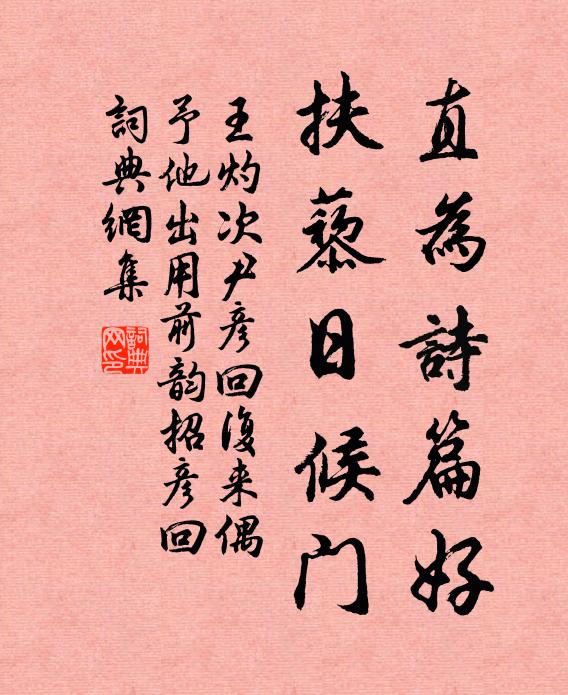 直為詩篇好
扶藜日候門
王灼次尹彥回復来偶
予他出用前韵招彥回
詞典網集
詞典网印